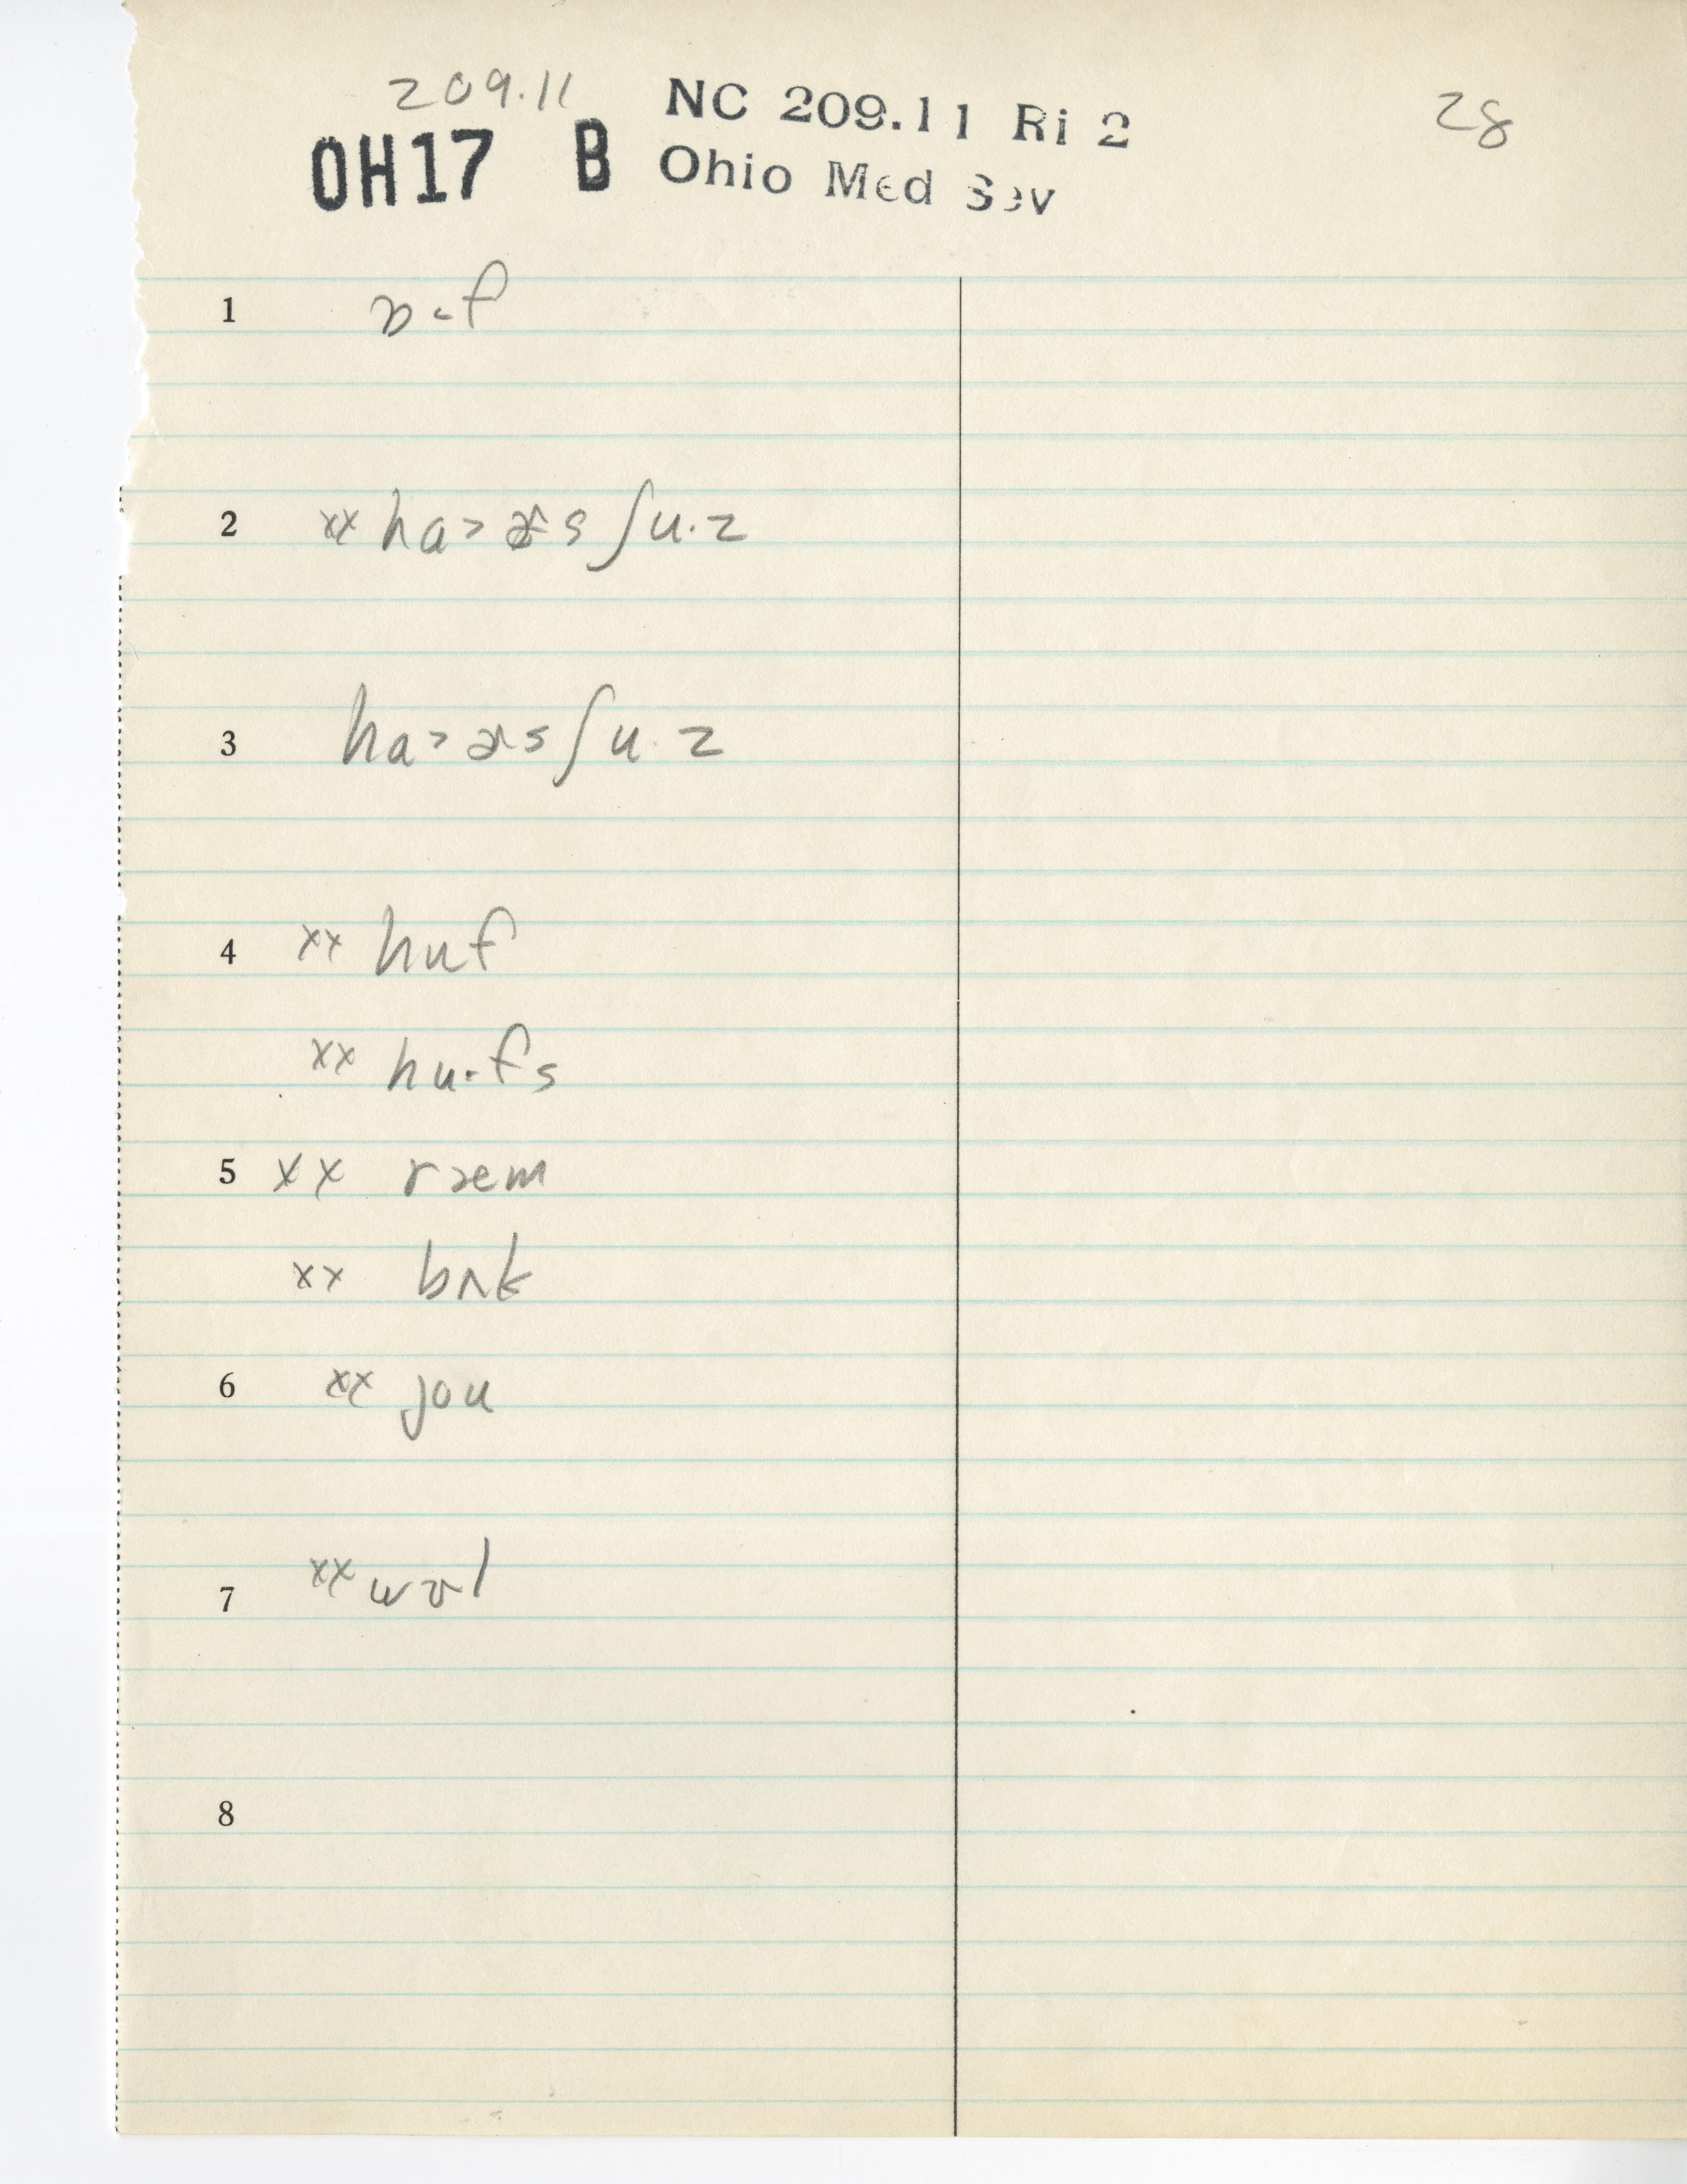 209.11 NC 209.11 Ri 2 28
OH17 B Ohio Med Sev
1
2
3
4 xx huf
xx hu·fs
5 xx ræm
xx bʌk
6 xx jou
7 xx
8